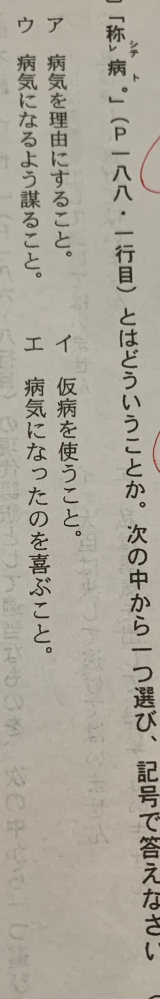 「称レ病。」(P一八八・一行目)とはどういうことか。次の中から一つ選び、記号で答えなさい
シテ ト
ア 病気を理由にすること。
イ 仮病を使うこと。
ウ 病気になるよう謀ること。
エ 病気になったのを喜ぶこと。